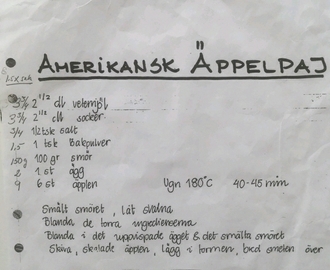 AMERIKANSK ÄPPELPAJ
1,5 x sats
3 3/4 2 1/2 dl vetemjöl
3 3/4 2 1/2 dl socker
3/4 1/2 tsk salt
1,5 1 tsk Bakpulver
150g 100 gr smör
2 1 st ägg
9 6 st äpplen Ugn 180°C 40-45 min
Smält smöret, låt svalna
Blanda de torra ingredienserna
Blanda i det uppvispade ägget & det smälta smöret
Skiva, skalade äpplen, lägg i formen, bred smeten över